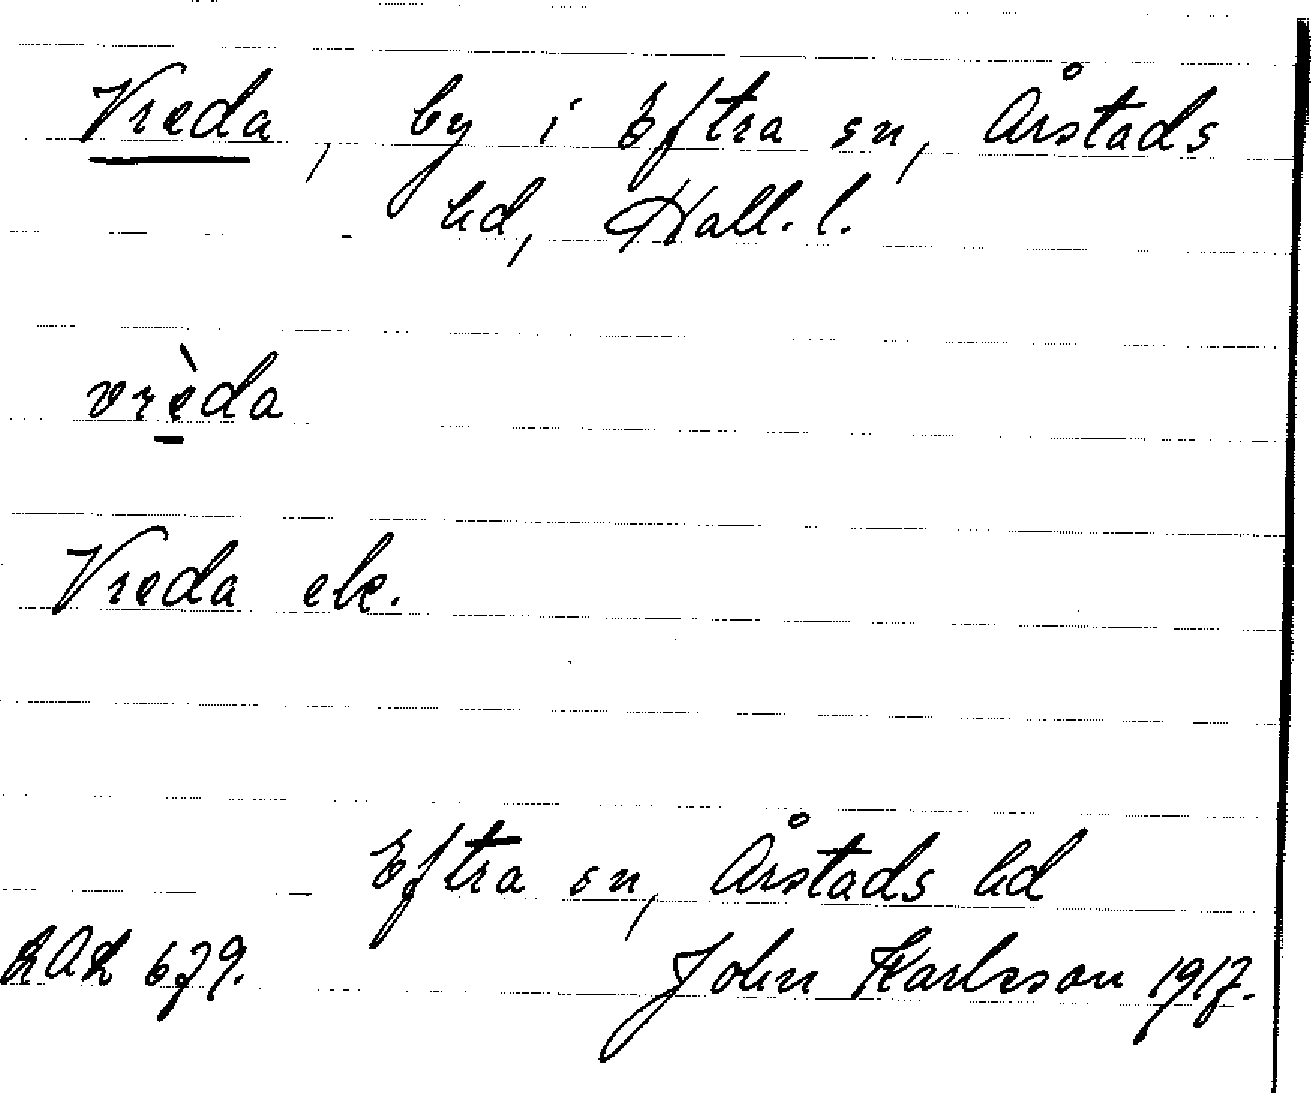 Vreda, by i Eftra sn, Årstads
hd, Hall. l.
vrèda
Vreda ek.
Eftra sn, Årstads hd
679. John Karlsson 1917.